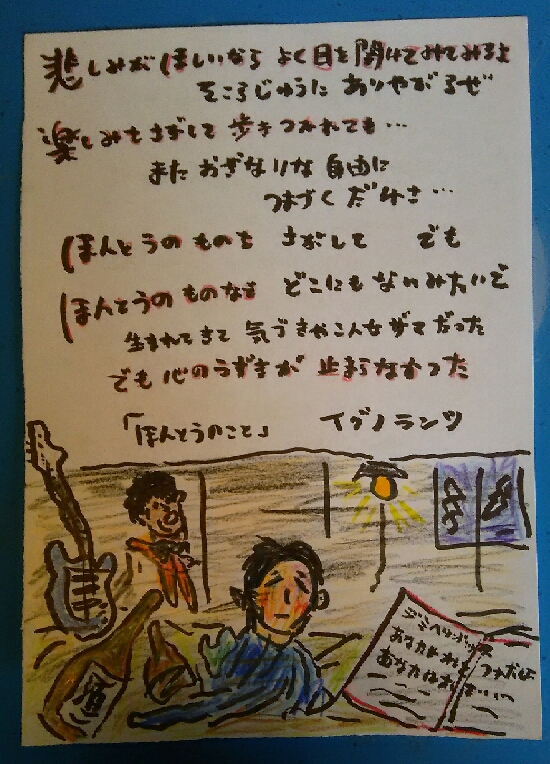 悲しみがほしいなら よく目を開けてみてみろよ
そこらじゅうに ありやがるぜ
楽しみをさがして 歩きつかれても…
また おざなりな 自由に
つまづくだけさ…
ほんとうのものを さがして でも
ほんとうのものなど どこにもないみたいで
生まれてきて 気づきゃこんなザマだった
でも心のうずきが 止まらなかった
「ほんとうのこと」 イグノランツ
あなたは